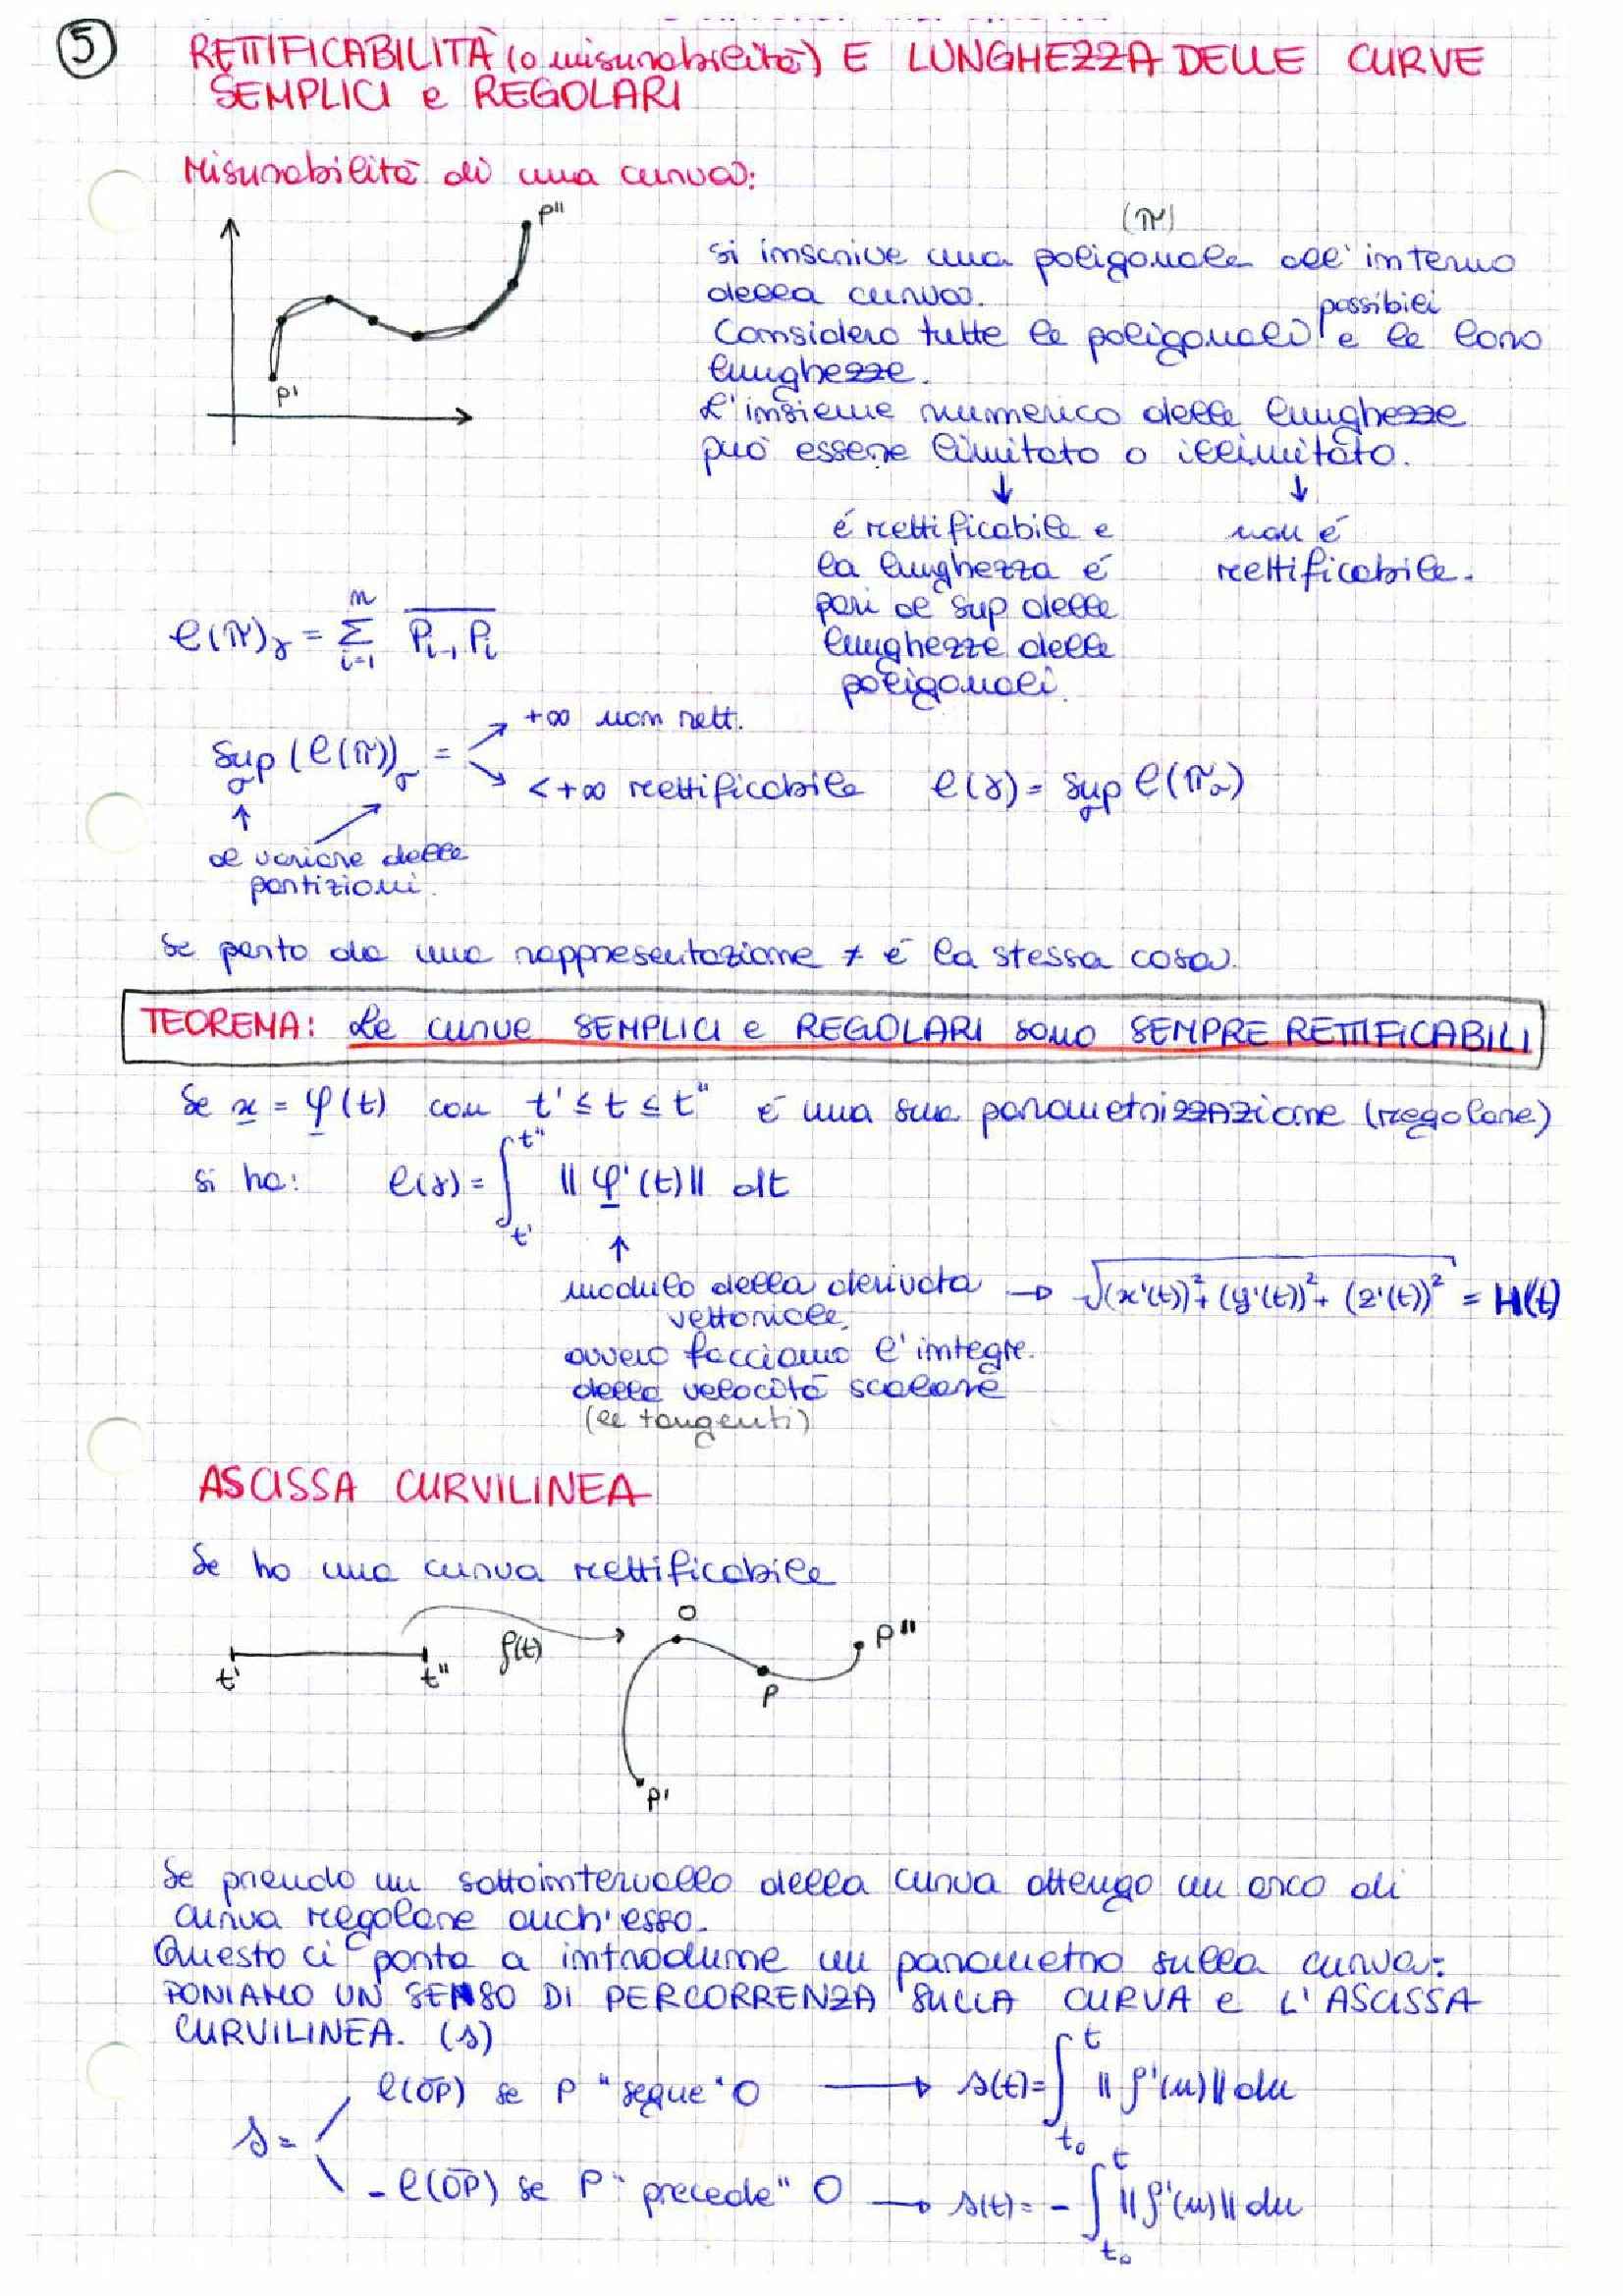 5
RETTIFICABILITÀ (o misurabilità) E LUNGHEZZA DELLE CURVE
SEMPLICI e REGOLARI
Misurabilità di una curva:
P"
P'
(π)
si inscrive una poligonale all'interno
della curva.
possibili
Considero tutte le poligonali e le loro
lunghezze.
L'insieme numerico delle lunghezze
può essere limitato o illimitato.
↓ ↓
é rettificabile e non é
la lunghezza é rettificabile.
pari al sup delle
lunghezze delle
poligonali.
l(π)γ = Σ_{i=1}^{n} \overline{P_{i-1} P_i}
+∞ non rett.
sup_σ (l(π))_σ =
<+∞ rettificabile l(γ) = sup_σ l(π_σ)
↑
al variare delle
partizioni.
Se parto da una rappresentazione ≠ é la stessa cosa.
TEOREMA: Le curve SEMPLICI e REGOLARI sono SEMPRE RETTIFICABILI
Se x = φ(t) con t' ≤ t ≤ t" é una sua parametrizzazione (regolare)
si ha: l(γ) = ∫_{t'}^{t"} || φ'(t) || dt
↑
modulo della derivata → √((x'(t))² + (y'(t))² + (z'(t))²) = H(t)
vettoriale,
ovvero facciamo l'integre.
della velocitá scalare
(le tangenti)
ASCISSA CURVILINEA
Se ho una curva rettificabile
t' t" f(t) O P P" P'
Se prendo un sottointervallo della curva ottengo un arco di
curva regolare anch'esso.
Questo ci porta a introdurre un parametro sulla curva:
PONIAMO UN SENSO DI PERCORRENZA SULLA CURVA e L'ASCISSA
CURVILINEA. (s)
l(OP) se P "segue" O → s(t) = ∫_{t₀}^{t} || f'(u) || du
s =
- l(OP) se P "precede" O → s(t) = - ∫_{t₀}^{t} || f'(u) || du